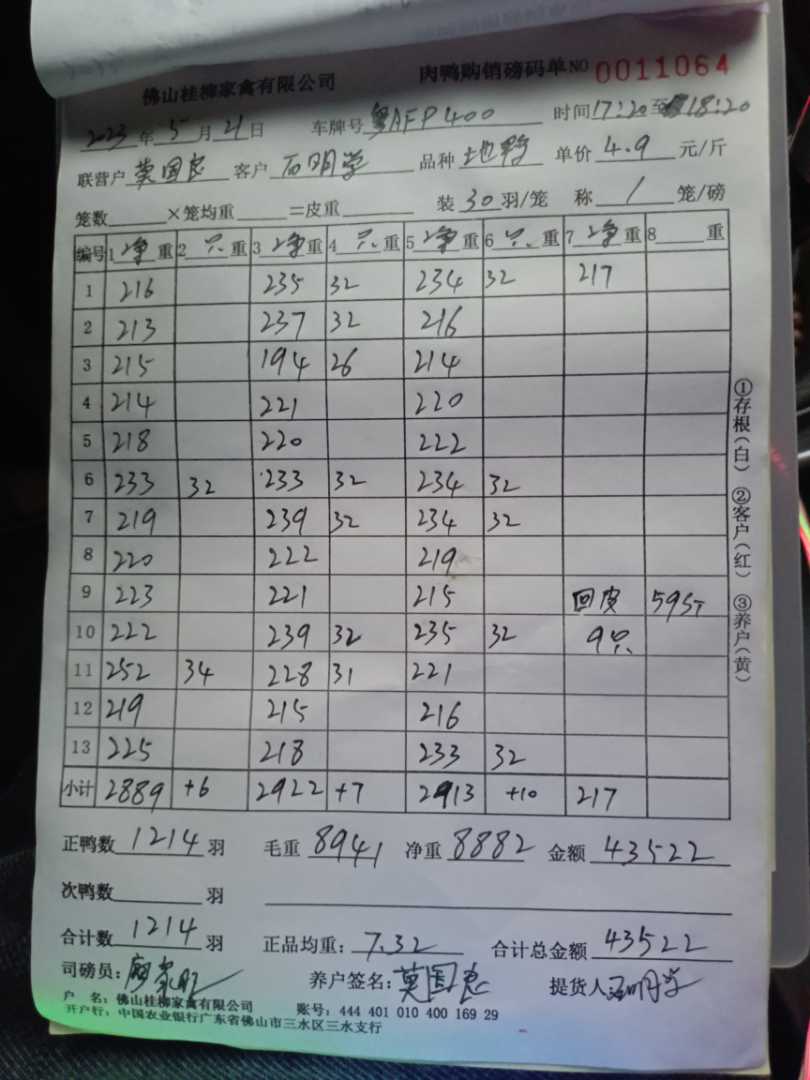 佛山桂柳家禽有限公司 肉鸭购销磅码单 NO 0011064
2023年5月21日 车牌号 粤AFP400 时间17:20至18:20
联营户 莫国良 客户 石明学 品种 地鸭 单价 4.9 元/斤
笼数 ×笼均重 =皮重 装 30 羽/笼 称 1 笼/磅
编号 1 净重 2 只重 3 净重 4 只重 5 净重 6 只重 7 净重 8 重
1 216 235 32 234 32 217
2 213 237 32 216
3 215 194 26 214
4 214 221 220
5 218 220 222
6 233 32 233 32 234 32
7 219 239 32 234 32
8 220 222 219
9 223 221 215 回皮 59斤
10 222 239 32 235 32 9只
11 252 34 228 31 221
12 219 215 216
13 225 218 233 32
小计 2889 +6 2922 +7 2913 +10 217
正鸭数 1214 羽 毛重 8941 净重 8882 金额 43522
次鸭数 羽
合计数 1214 羽 正品均重: 7.32 合计总金额 43522
司磅员: 养户签名: 莫国良 提货人 石明学
户 名: 佛山桂柳家禽有限公司 账号: 444 401 010 400 169 29
开户行: 中国农业银行广东省佛山市三水区三水支行
①存根(白) ②客户(红) ③养户(黄)